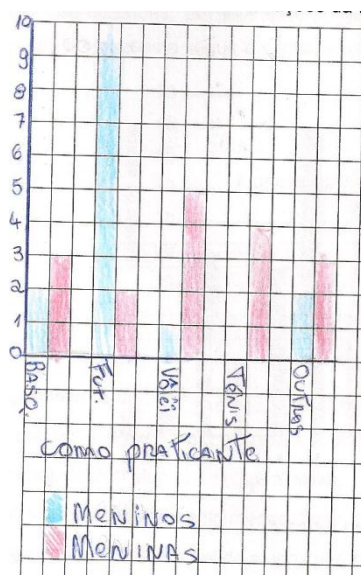 10
9
8
7
6
5
4
3
2
1
0
BASQ.
Fut.
Vôlêi
Tênis
OUTROS
como praticante
MENINOS
MENINAS